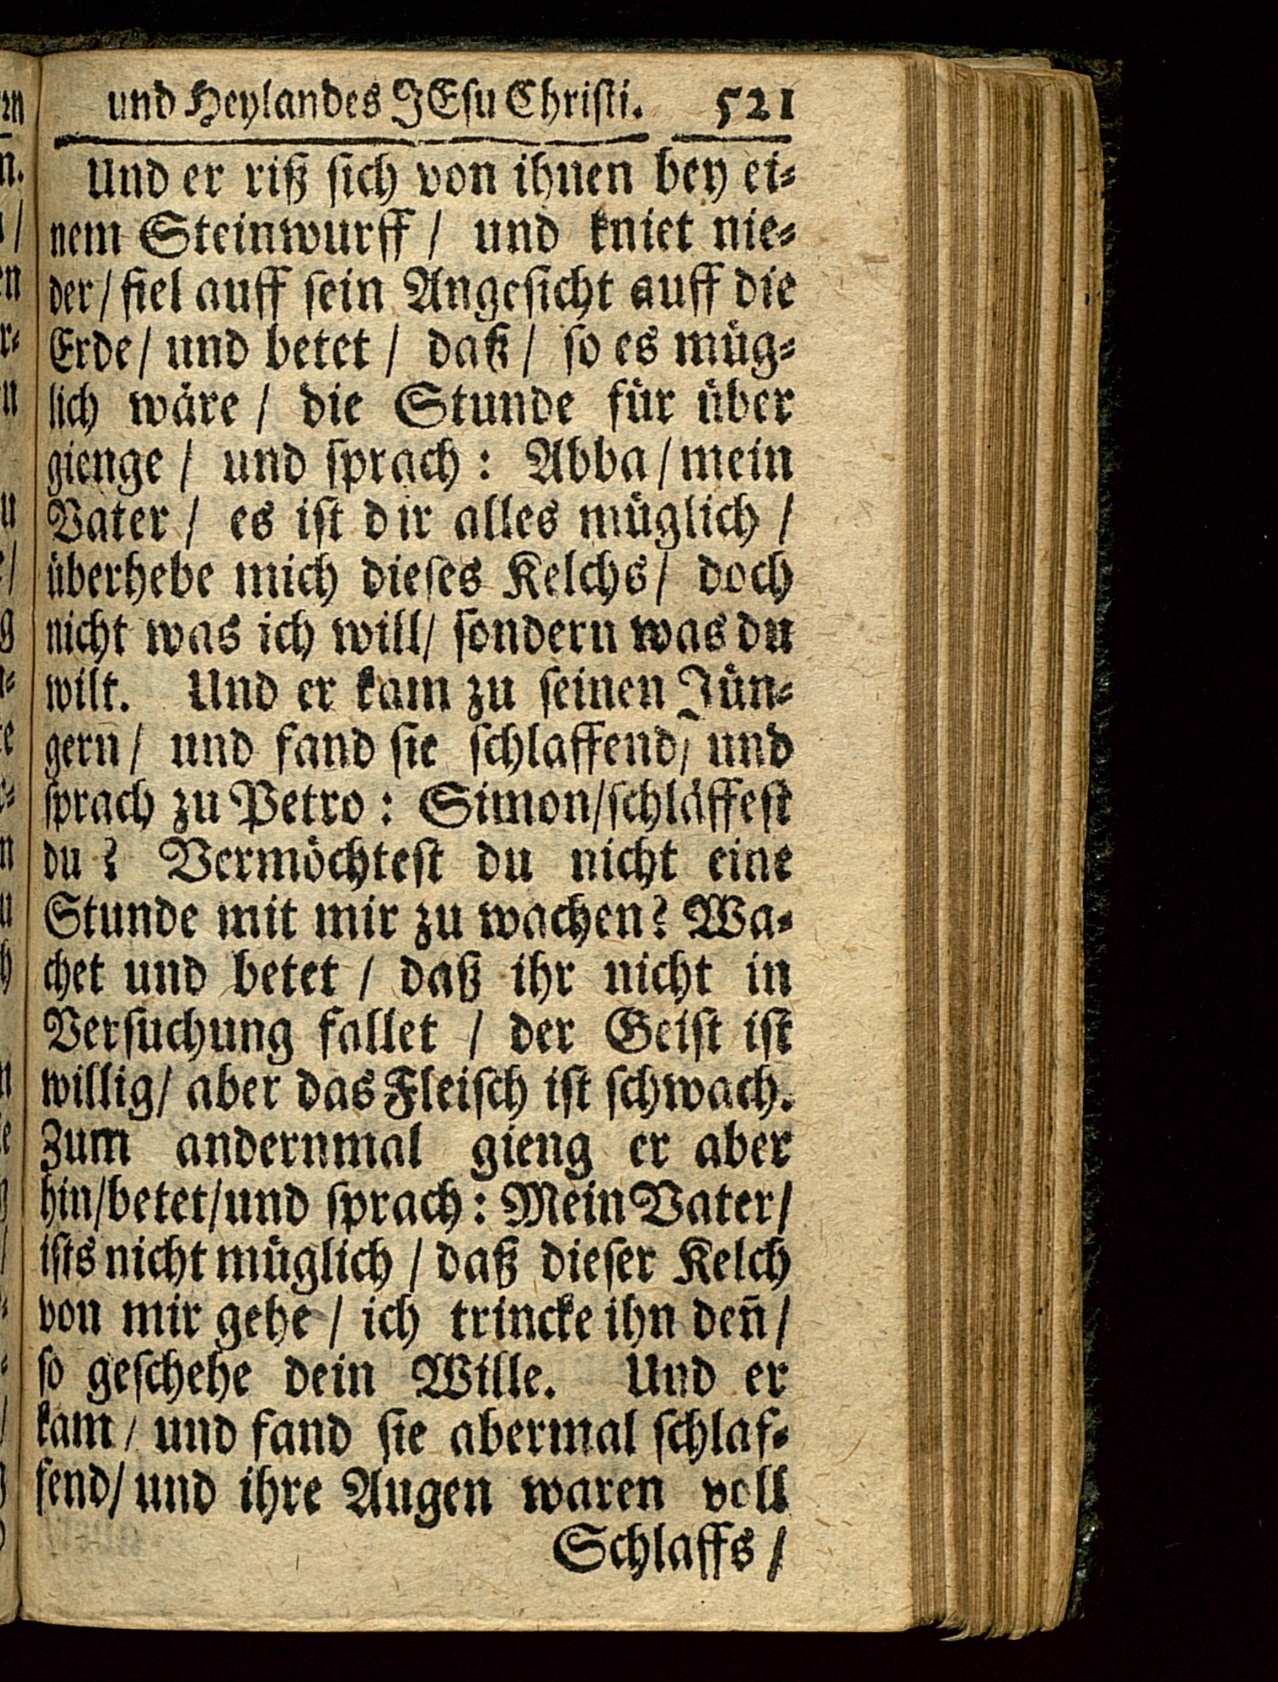 und Heylandes JEsu Christi. 521
Und er riß sich von ihnen bey ei-
nem Steinwurff / und kniet nie-
der / fiel auff sein Angesicht auff die
Erde / und betet / daß / so es müg-
lich wäre / die Stunde für über
gienge / und sprach : Abba / mein
Vater / es ist dir alles müglich /
überhebe mich dieses Kelchs / doch
nicht was ich will / sondern was du
wilt. Und er kam zu seinen Jün-
gern / und fand sie schlaffend / und
sprach zu Petro : Simon / schläffest
du ? Vermöchtest du nicht eine
Stunde mit mir zu wachen ? Wa-
chet und betet / daß ihr nicht in
Versuchung fallet / der Geist ist
willig / aber das Fleisch ist schwach.
Zum andernmal gieng er aber
hin / betet / und sprach : Mein Vater /
ists nicht müglich / daß dieser Kelch
von mir gehe / ich trincke ihn den̄ /
so geschehe dein Wille. Und er
kam / und fand sie abermal schlaf-
fend / und ihre Augen waren voll
Schlaffs /